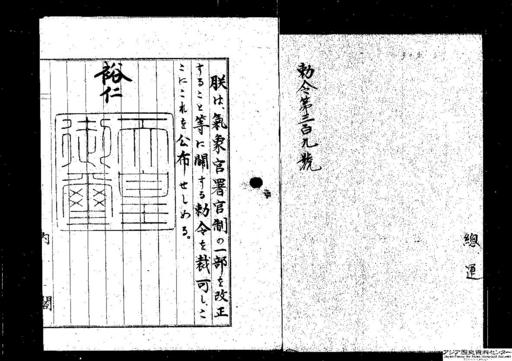 勅令第三百九號
總
運
朕は、氣象官署官制の一部を改正
すること等に關する勅令を裁可し、こ
こにこれを公布せしめる。
裕仁
天皇
御璽
内閣
アジア歴史資料センター